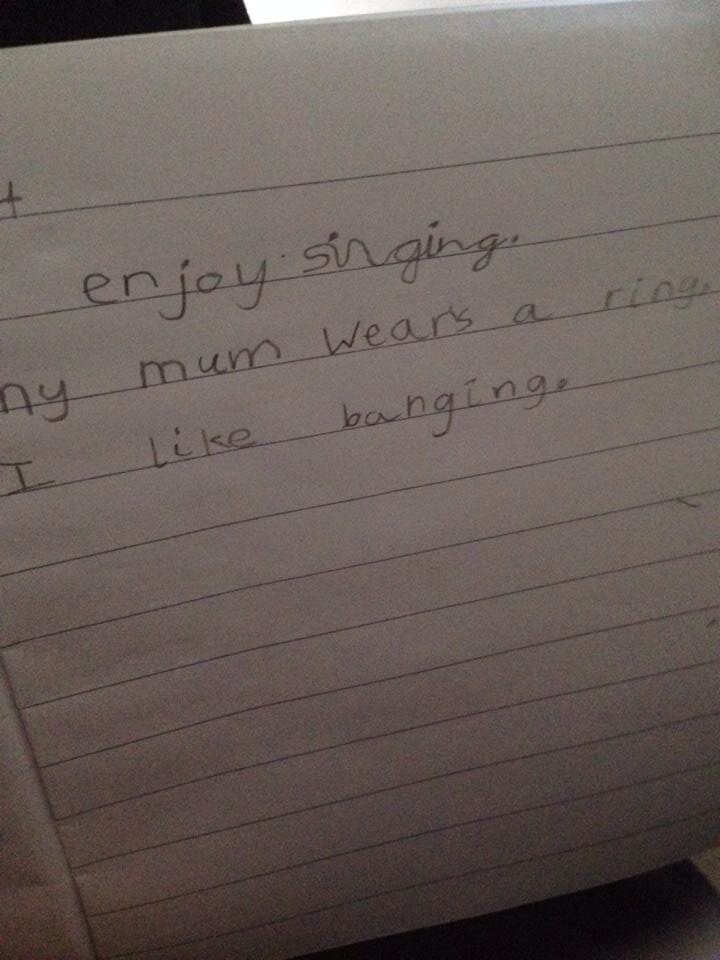 enjoy singing.
my mum wears a ring.
I like banging.